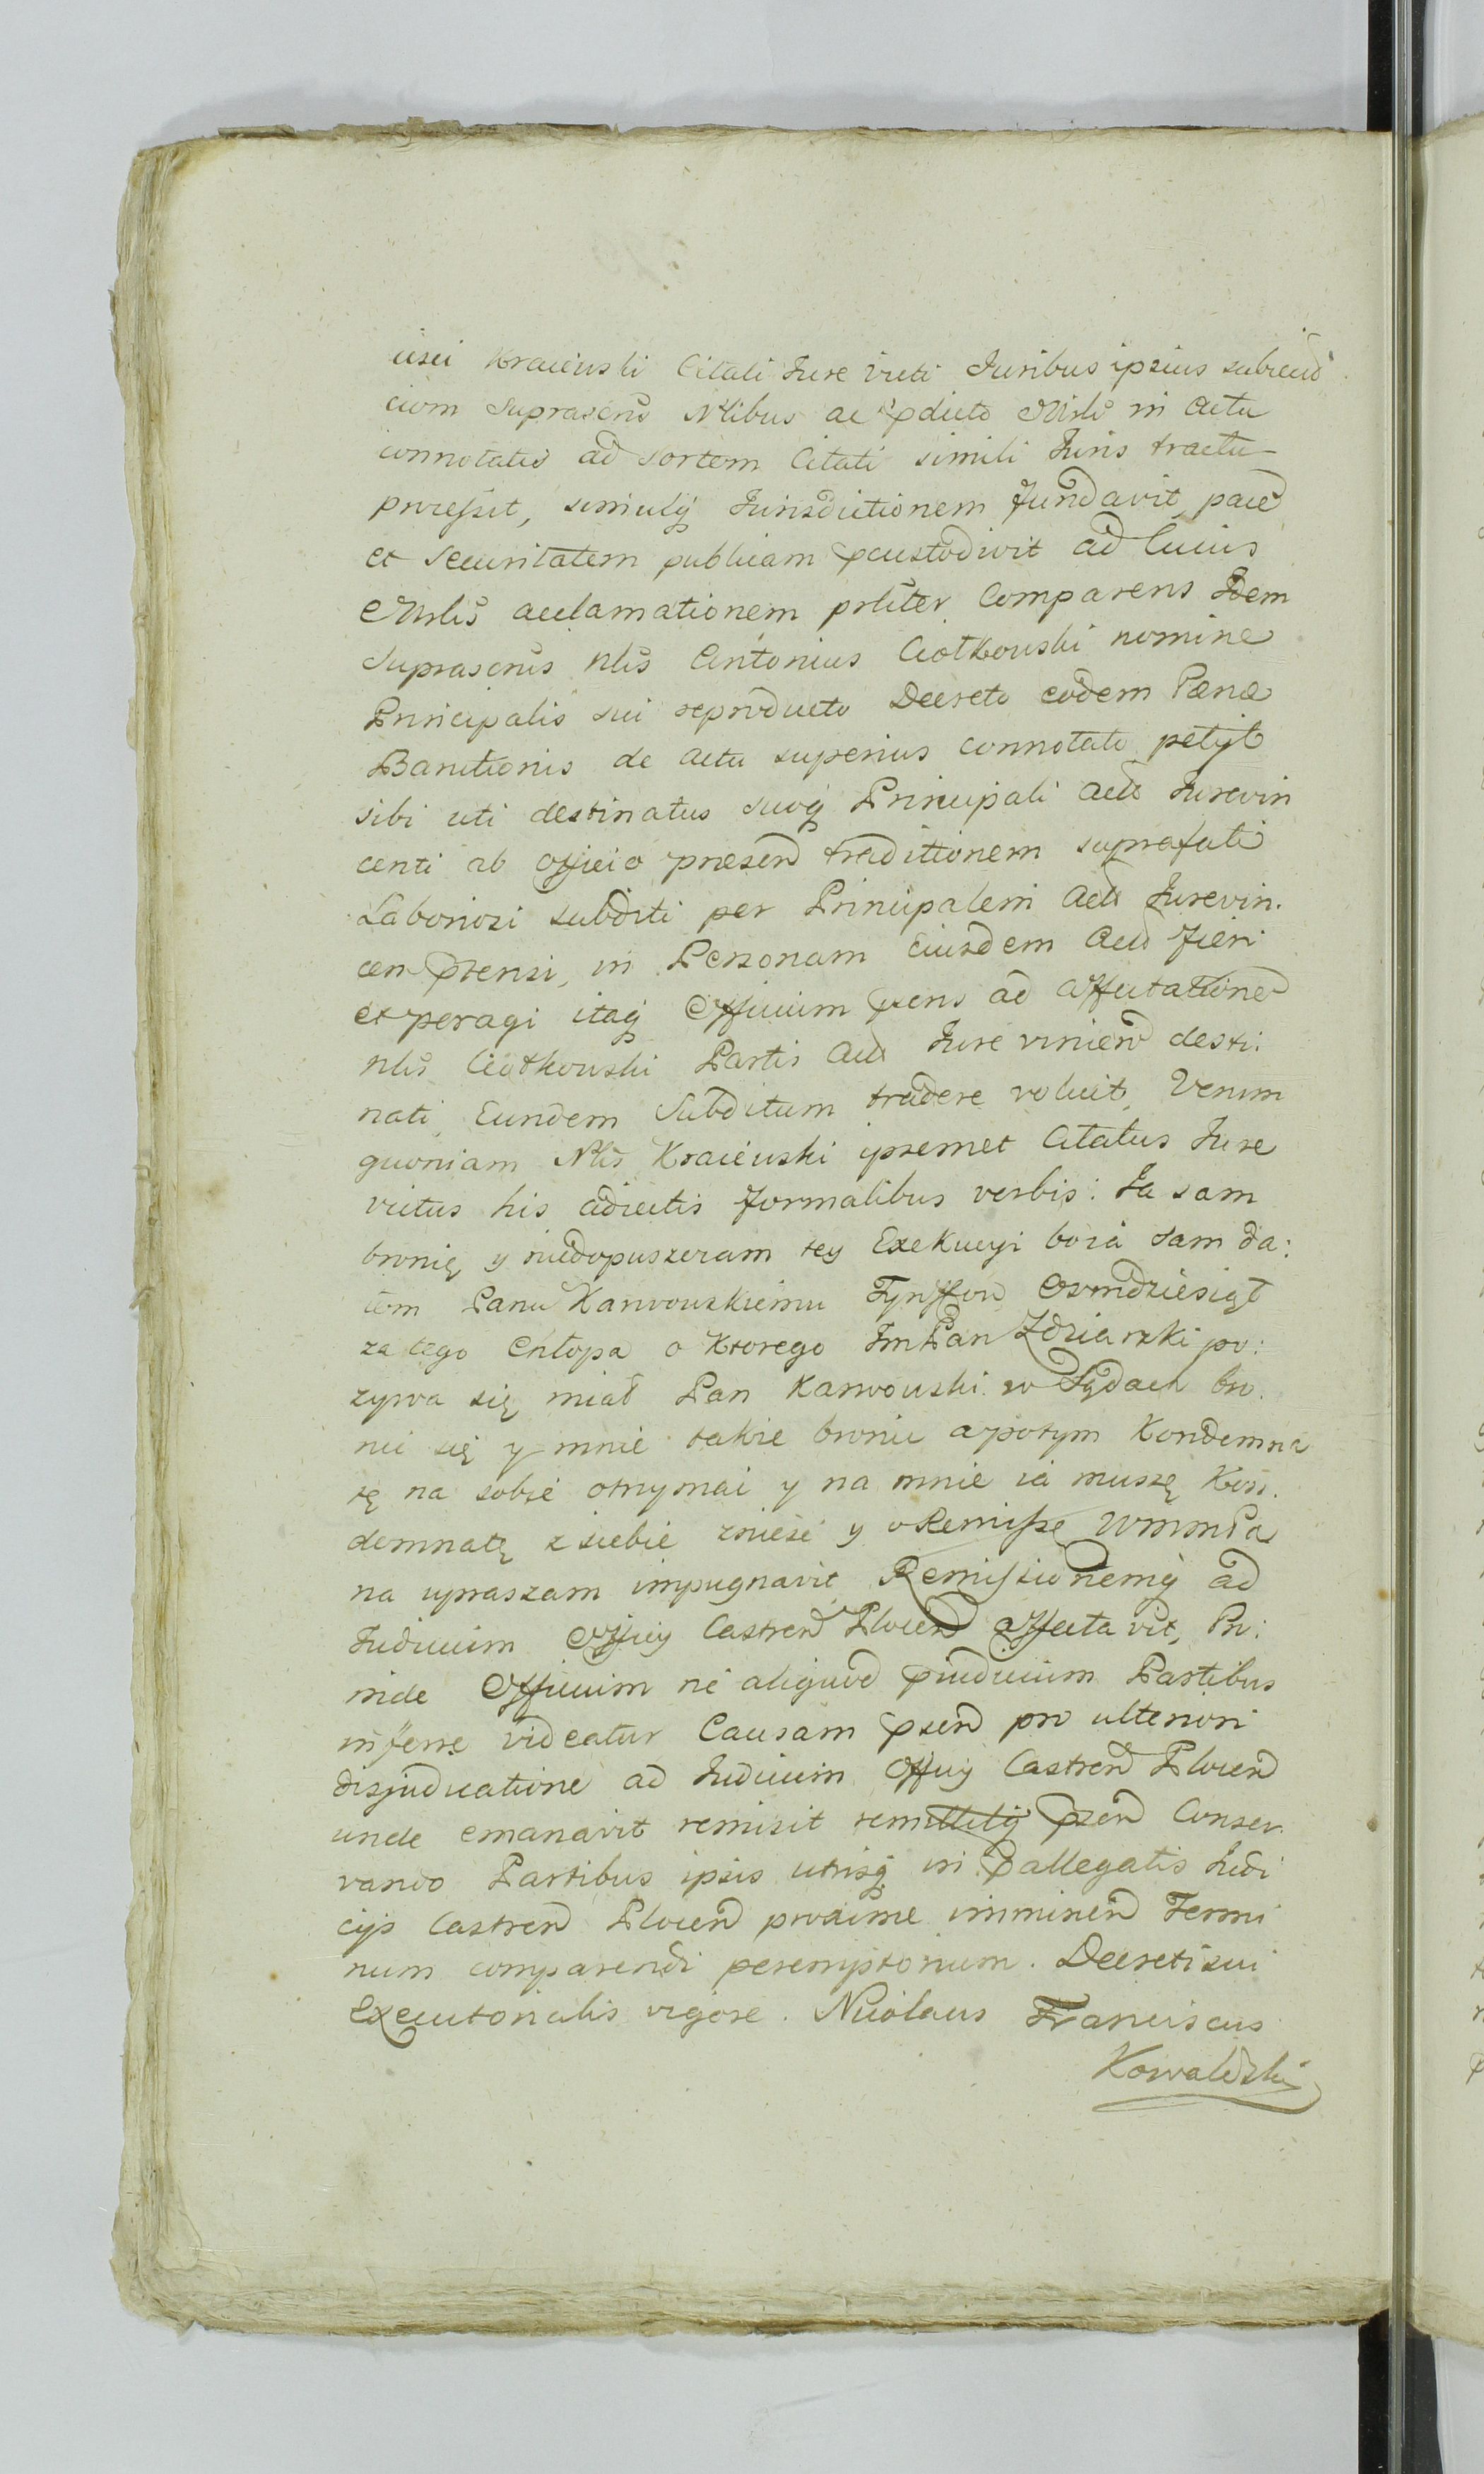 Kraiewski Citati Jure victi Juribus ipsius subiiciend
cum suprascris Nlibus ac pdicto Mrli in actu
connotatis ad sortem Citati simili Juris tractu
processit, simulq Jurisdictionem fundavit, pacē
et securitatem publicam pcustodivit ad Cuius
Mrlis acclamationem prliter Comparens Idem
suprascris Nlis Antonius Ciotkowski nomine
Principalis sui reproducto Decreto eodem Pœnæ
Banitionis de actu superius connotato petyt
sibi uti destinatus suoq Principali Acts Jurevin
centi ab officio præsen traditionem suprafati
Laboriosi subditi per Principalem Acts Jurevin.
cen ptensi, in Personam Eiusdem Acts fieri
et peragi itaq Officium psens ad affectationē
Nlis Ciotkowski Partis Acts Jure vincen desti:
nati, Eundem Subditum tradere voluit, Verum
quoniam Nlis Kraiewski ipsemet Citatus Jure
victus his adiectis formalibus verbis: Ja sam
bronię y niedopuszczam tey Exekucyi bo ia sam da:
łem Panu Karwowskiemu Tynffow Osmdziesiąt
za tego Chłopa o Ktorego ImPan Zdziarski po:
zywa się miał Pan Karwowski w Sądach bro.
nić się y mnie takze bronić a potym Kondemna
tę na sobie otrzymał y na mnie ia muszę Kon.
demnatę z siebie znieść y o Remissę WmmPa
na upraszam impugnavit Remissionemq ad
Judicium Officij Castren Plocen affectavit, Pro:
inde Officium ne aliquod pjudicium Partibus
inferre videatur Causam psen pro ulteriori
disjudicatione ad Judicium Officij Castren Plocen
unde emanavit remisit remittitq psen Conser.
vando Partibus ipsis utrisq in pallegatis Judi
cijs Castren Plocen proxime imminen Termi
num comparendi peremptorium. Decreti sui
Executorialis vigore. Nicolaus Franciscus
Kowalewski